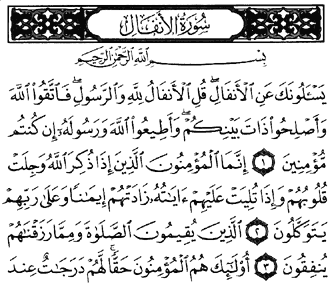 سُورَةُ الأَنفَالِ
بِسْمِ اللَّهِ الرَّحْمَٰنِ الرَّحِيمِ
يَسْـَٔلُونَكَ عَنِ ٱلْأَنفَالِۖ قُلِ ٱلْأَنفَالُ لِلَّهِ وَٱلرَّسُولِۖ فَٱتَّقُوا۟ ٱللَّهَ
وَأَصْلِحُوا۟ ذَاتَ بَيْنِكُمْۖ وَأَطِيعُوا۟ ٱللَّهَ وَرَسُولَهُۥٓ إِن كُنتُم
مُّؤْمِنِينَ ١ إِنَّمَا ٱلْمُؤْمِنُونَ ٱلَّذِينَ إِذَا ذُكِرَ ٱللَّهُ وَجِلَتْ
قُلُوبُهُمْ وَإِذَا تُلِيَتْ عَلَيْهِمْ ءَايَٰتُهُۥ زَادَتْهُمْ إِيمَٰنًا وَعَلَىٰ رَبِّهِمْ
يَتَوَكَّلُونَ ٢ ٱلَّذِينَ يُقِيمُونَ ٱلصَّلَوٰةَ وَمِمَّا رَزَقْنَٰهُمْ
يُنفِقُونَ ٣ أُو۟لَٰٓئِكَ هُمُ ٱلْمُؤْمِنُونَ حَقًّاۚ لَّهُمْ دَرَجَٰتٌ عِندَ